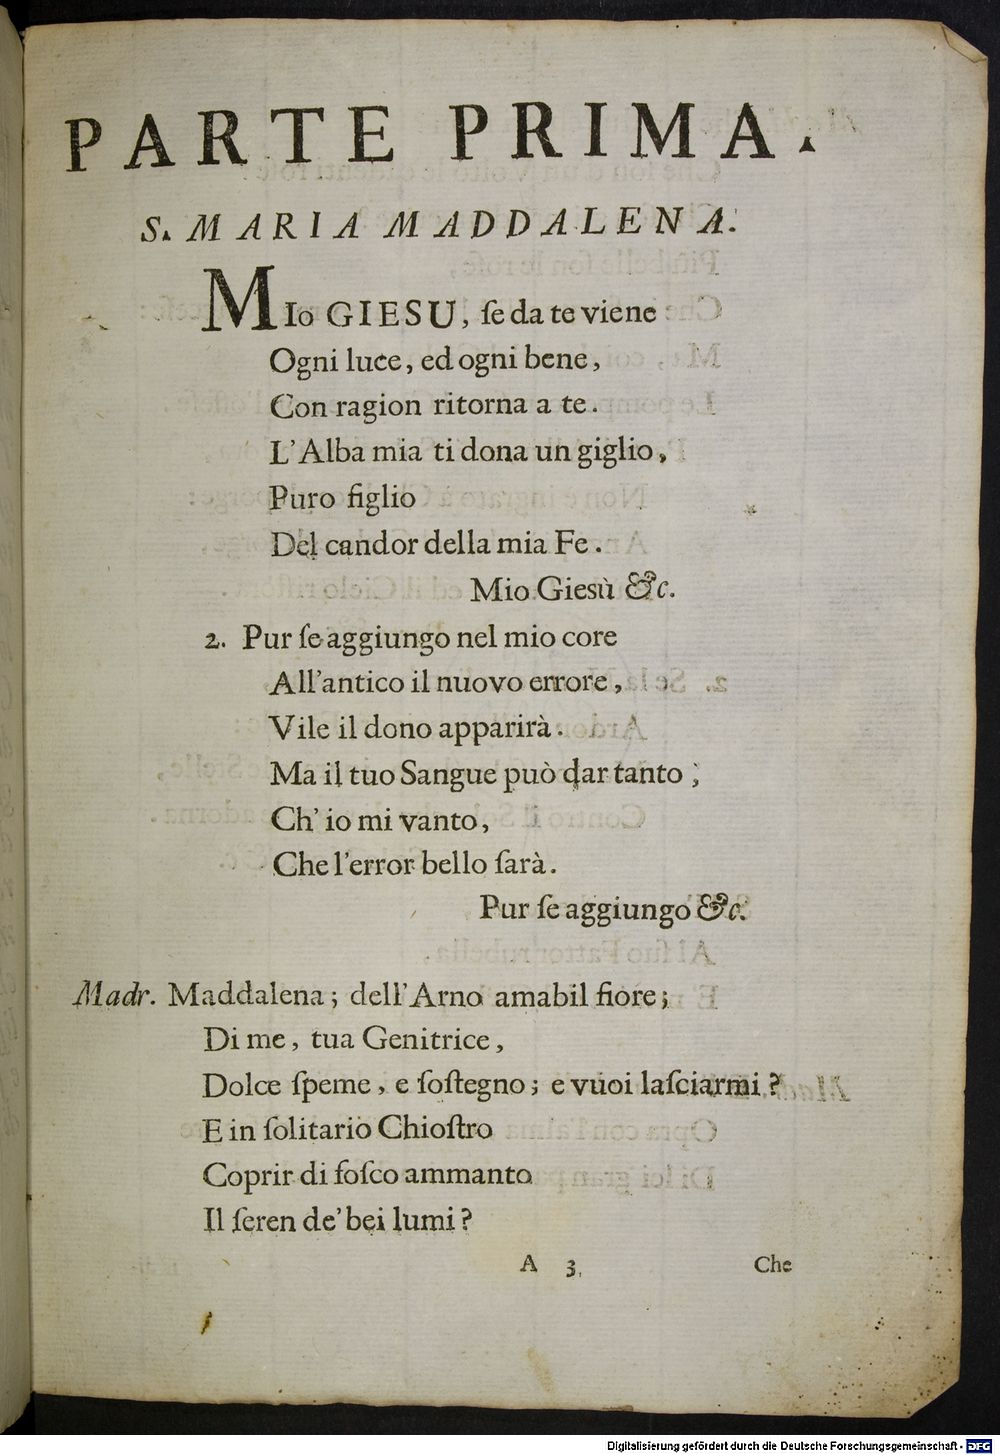 PARTE PRIMA.
S. MARIA MADDALENA.
MIo GIESU, ſe da te viene
Ogni luce, ed ogni bene,
Con ragion ritorna a te.
L'Alba mia ti dona un giglio,
Puro figlio
Del candor della mia Fe.
Mio Giesù &c.
2. Pur ſe aggiungo nel mio core
All'antico il nuovo errore,
Vile il dono apparirà.
Ma il tuo Sangue può dar tanto;
Ch' io mi vanto,
Che l'error bello ſarà.
Pur ſe aggiungo &c.
Madr. Maddalena; dell'Arno amabil fiore;
Di me, tua Genitrice,
Dolce ſpeme, e ſoſtegno; e vuoi laſciarmi?
E in ſolitario Chioſtro
Coprir di foſco ammanto
Il ſeren de' bei lumi?
A 3 Che
Digitalisierung gefördert durch die Deutsche Forschungsgemeinschaft - DFG